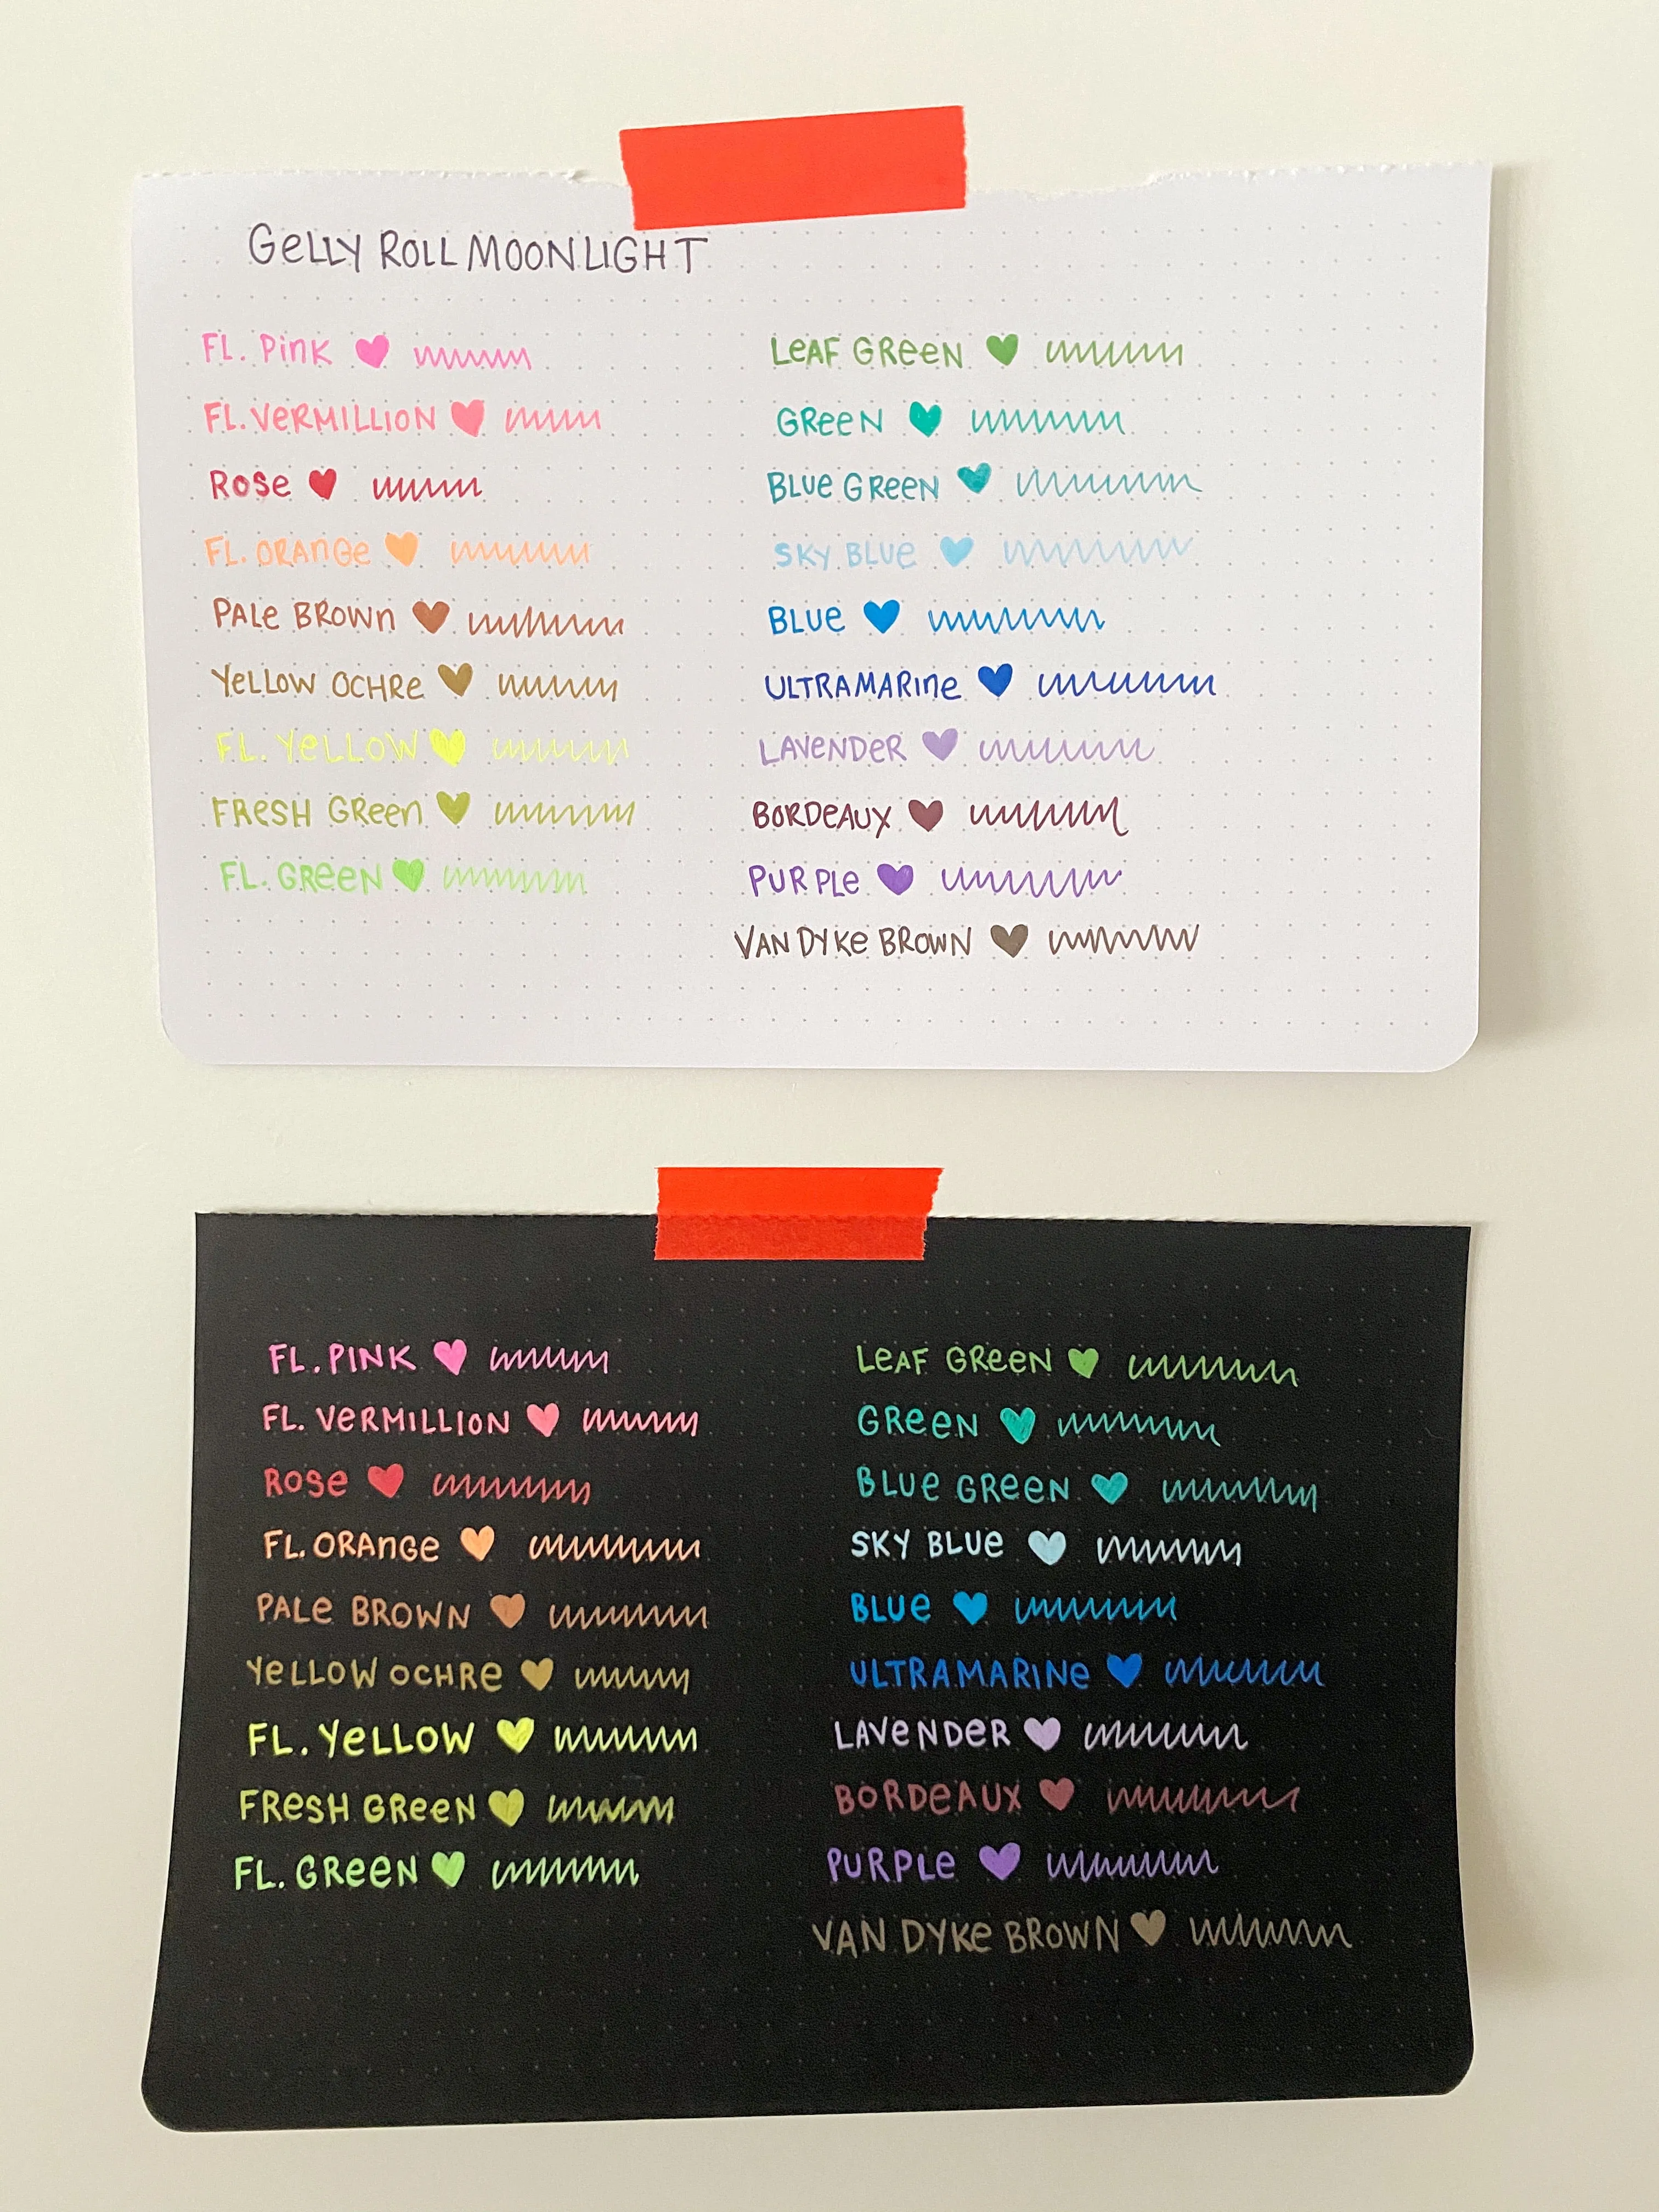 GeLLY ROLL MOONLIGHT
FL. PinK
FL. VeRMILLION
ROSe
FL. ORAnGe
PALe BROWn
YeLLOW OCHRe
FL. YeLLOW
FReSH GReen
FL. GReeN
LeAF GReeN
GReeN
BLUe GReeN
SKY BLUe
BLUe
ULTRAMARIne
LAVeNDeR
BORDeAUX
PURPLe
VAN DYKe BROWN
FL. PINK
FL. VeRMILLION
ROSe
FL. ORAnGe
PALe BROWN
YeLLOW OCHRe
FL. YeLLOW
FReSH GReeN
FL. GReeN
LeAF GReeN
GReeN
BLUe GReeN
SKY BLUe
BLUe
ULTRAMARINe
LAVeNDeR
BORDeAUX
PURPLe
VAN DYKe BROWN